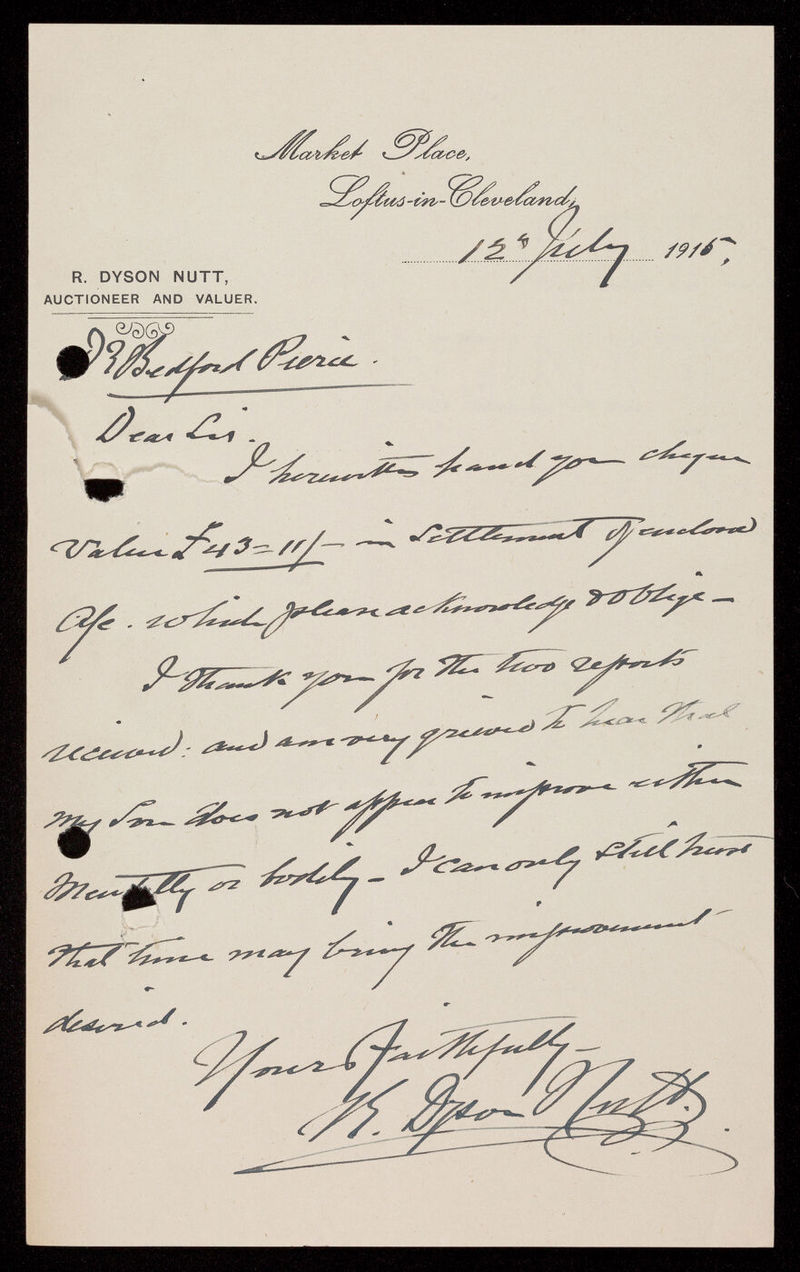 Market Place,
Loftus-in-Cleveland,
12th July 1915,
R. DYSON NUTT,
AUCTIONEER AND VALUER.
Dr Bedford Pierce.
Dear Sir.
I herewith hand you cheque
value £43=11/- in settlement of enclosed
A/c. which please acknowledge & oblige -
I thank you for the two reports
received: and am very grieved to hear that
my Son does not appear to improve either
Mentally or bodily - I can only still trust
that time may bring the improvement
desired.
Yours Faithfully -
R. Dyson Nutt.